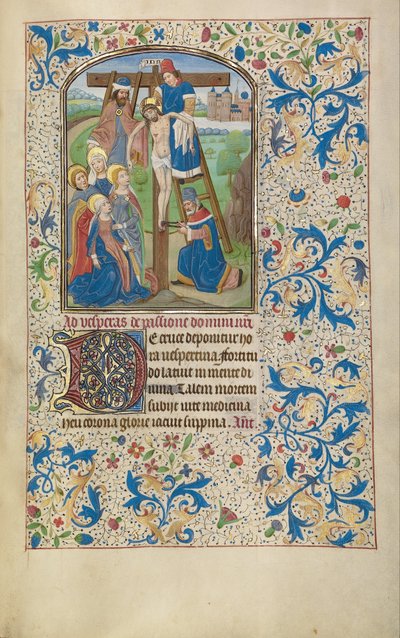 INRI
Ad vesperas de passione domini nri
De cruce deponitur ho
ra vespertina. fortitu
do latuit in mente di
uina. Talem mortem
subijt uite medicina
heu corona glorie iacuit suppina. Ant